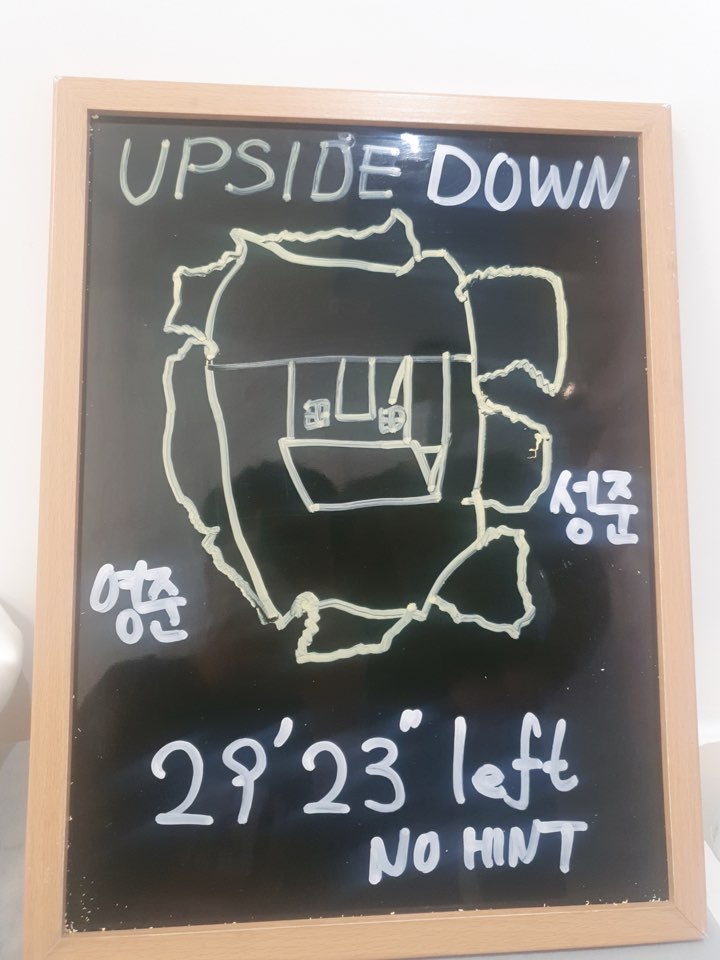 UPSIDE DOWN
성준
영준
29'23" left
NO HINT